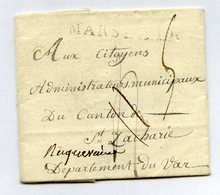 MARSEILLE
Aux Citoyens
Administrateurs municipaux
Du Canton de
St. Zacharie
Département du Var